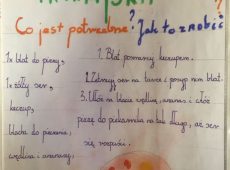 Co jest potrzebne? Jak to zrobić?
1x blat do pizzy,
1x żółty ser,
keczup,
blacha do pieczenia,
wędlina i ananasy,
1. Blat posmaruj keczupem.
2. Zetrzyj ser na tarce i posyp nim blat.
3. Ułóż na blacie wędlinę, ananasy i włóż
pizzę do piekarnika na tak długo, aż ser
się rozpuści.